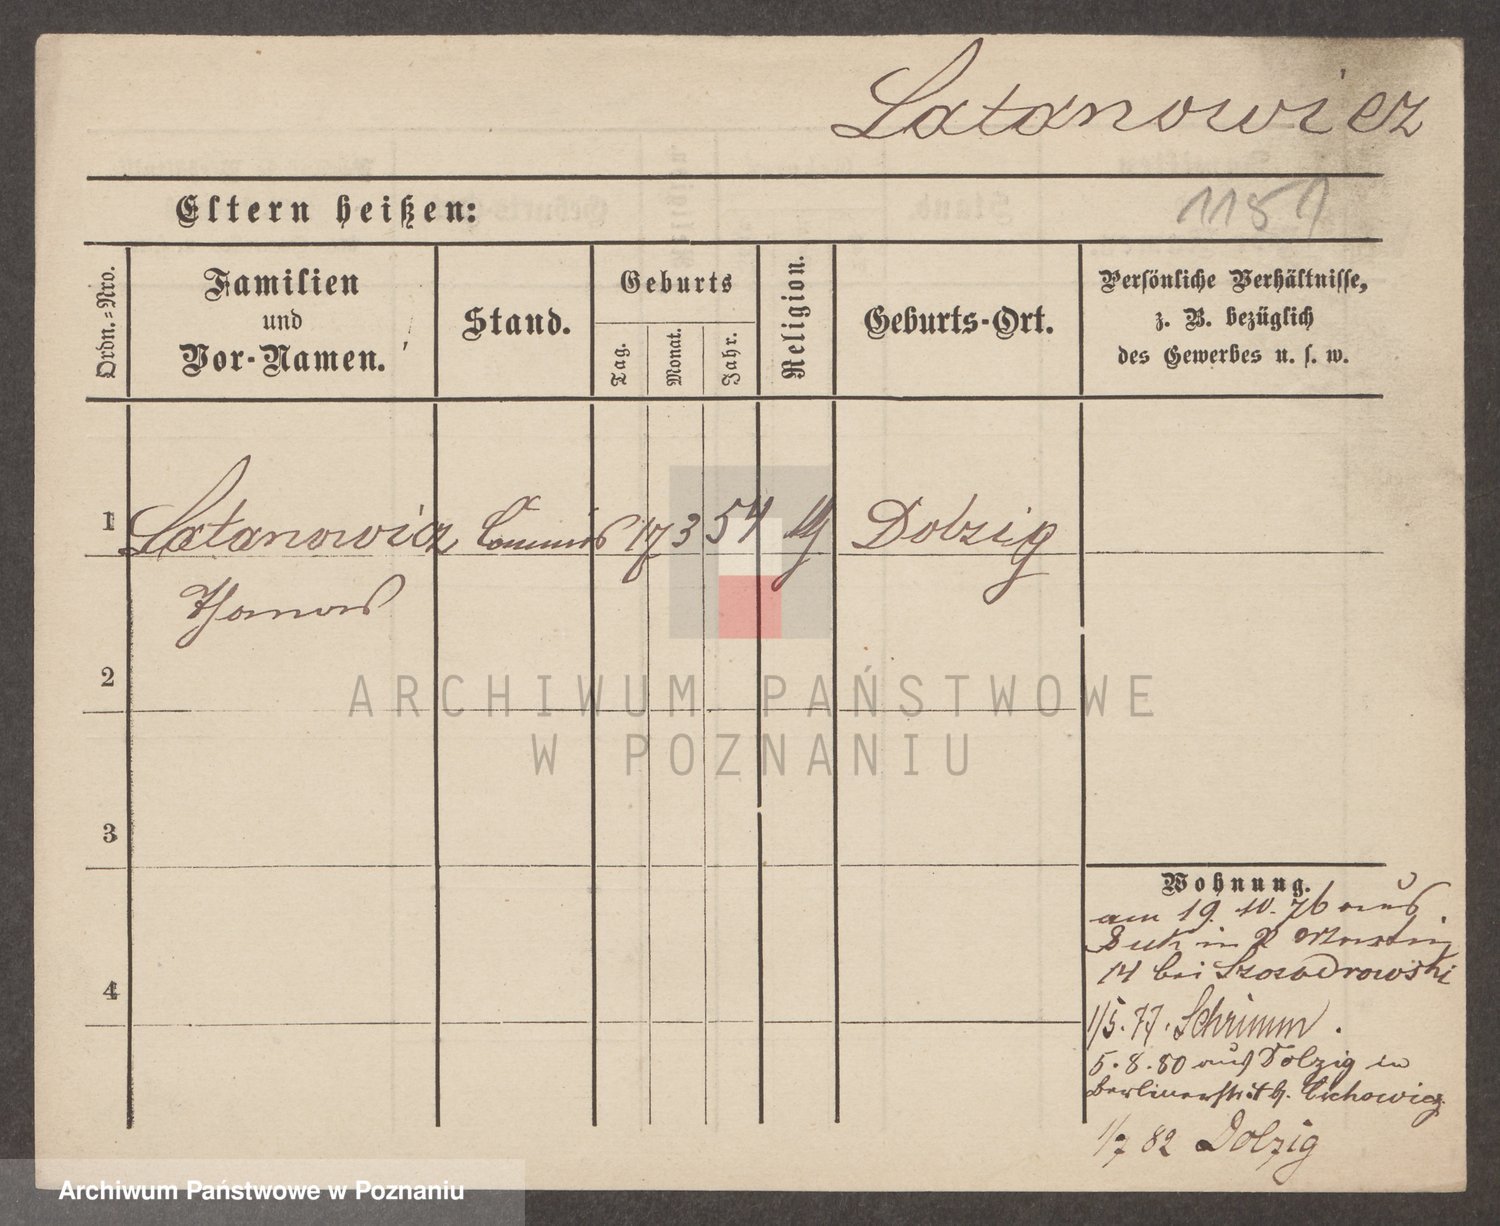 Latanowicz
1151
Eltern heißen:
Ordn.-Nro.
Familien
und
Vor-Namen.
Stand.
Geburts
Tag.
Monat.
Jahr.
Religion.
Geburts-Ort.
Persönliche Verhältnisse,
z. B. bezüglich
des Gewerbes u. s. w.
1 Latanowicz Commis 17 3 54 Dolzig
Thomas
2
ARCHIWUM PAŃSTWOWE
W POZNANIU
3
Wohnung.
am 19. 10. 76 aus
Buk in
4
14 bei
1/5. 77. Schrimm.
5. 8. 80 aus Dolzig in
Berlinerstr.
1/7 82 Dolzig
Archiwum Państwowe w Poznaniu